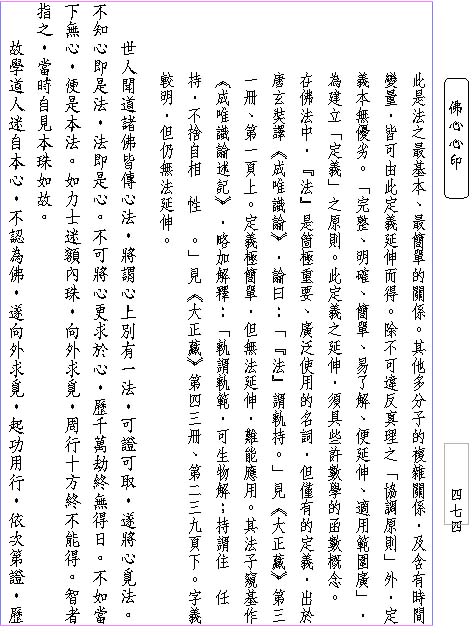 佛心心印
此是法之最基本、最簡單的關係。其他多分子的複雜關係，及含有時間
變量，皆可由此定義延伸而得。除不可違反真理之「協調原則」外，定
義本無優劣。「完整、明確、簡單、易了解、便延伸、適用範圍廣」，
為建立「定義」之原則。此定義之延伸，須具些許數學的函數概念。
在佛法中，『法』是箇極重要、廣泛使用的名詞，但僅有的定義，出於
唐玄奘譯《成唯識論》，論曰：「『法』謂軌持。」見《大正藏》第三
一冊、第一頁上。定義極簡單，但無法延伸，難能應用。其法子窺基作
《成唯識論述記》，略加解釋：「軌謂軌範，可生物解；持謂住　任
持，不捨自相　性　。」見《大正藏》第四三冊、第二三九頁下。字義
較明，但仍無法延伸。
世人聞道諸佛皆傳心法，將謂心上別有一法，可證可取，遂將心覓法。
不知心即是法，法即是心。不可將心更求於心，歷千萬劫終無得日。不如當
下無心，便是本法。如力士迷額內珠，向外求覓，周行十方終不能得。智者
指之，當時自見本珠如故。
故學道人迷自本心，不認為佛，遂向外求覓，起功用行，依次第證，歷
四七四